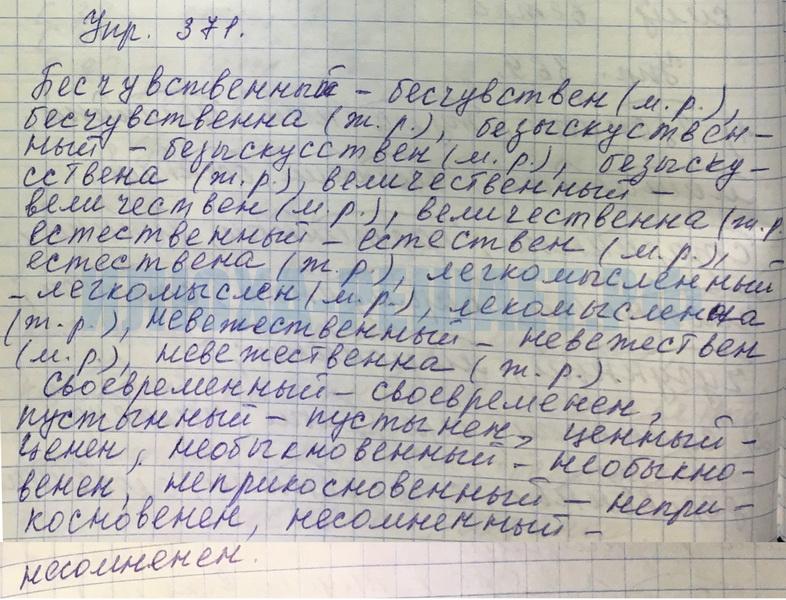 Упр. 371.
Бесчувственный – бесчувствен (м.р.),
бесчувственна (ж.р.), безыскуствен-
ный – безыскусствен (м.р.), безыску-
сствена (ж.р.), величественный –
величествен (м.р.), величественна (ж.р
естественный – естествен (м.р.),
естествена (ж.р), легкомысленный
– легкомыслен (м.р.), лекомысленна
(ж.р.), невежественный – невежествен
(м.р.), невежественна (ж.р.).
Своевременный – своевременен,
пустынный – пустынен, ценный –
ценен, необыкновенный – необыкно-
венен, неприкосновенный – непри-
косновенен, несомненный –
несомненен.